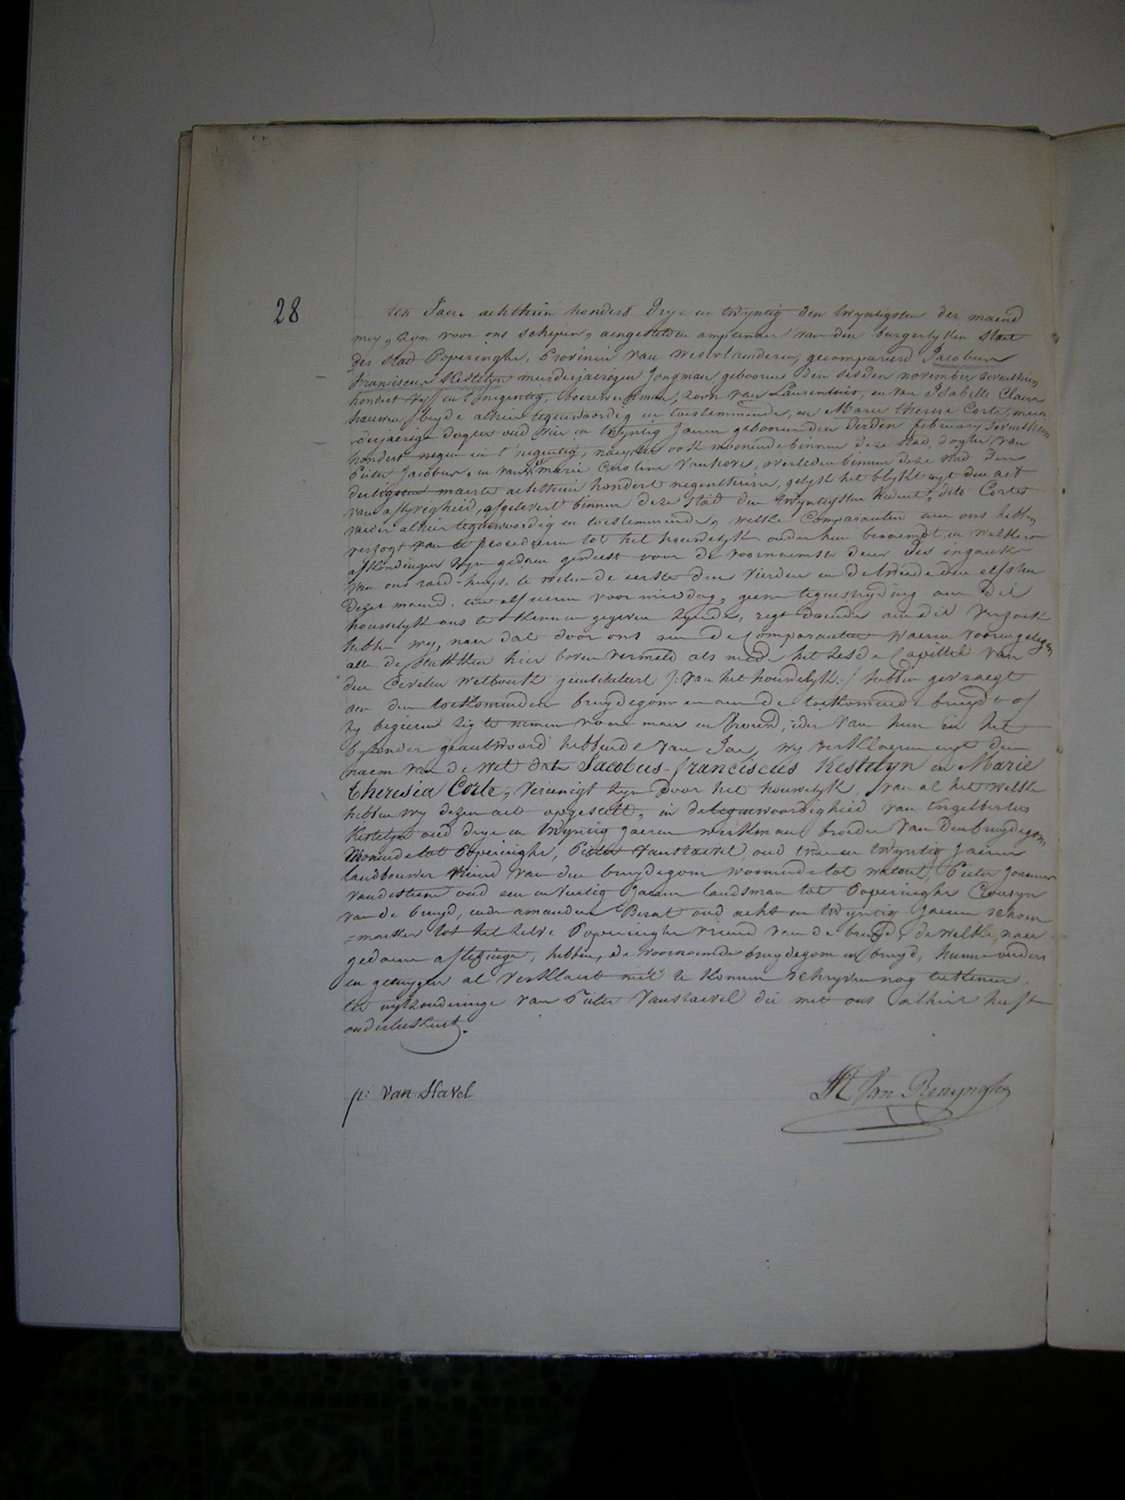 28
ten Jaere achttien honderd drye en twyntig den twyntigsten der maend
mey, zyn voor ons schepen, aengestelden amptenaer van den burgerlyken staet
der stad Poperinghe, Provincie van westvlaenderen, gecompareerd Jacobus
franciscus Kestelyn meerderjaerigen Jongman geboorene den sesden november seventhien
hondert vyf en t'negentig, boerewerkman, zoon van Laurentius, en van Isabelle Claire
beyde alhier tegenwoordig en toestemmende, en Marie therese Corte, meer-
derjaerige dogter oud vier en twyntig Jaeren geboorenden derden february seventhien
hondert negen en t'negentig, ook woonende binnen deze stad, dogter van
Pieter Jacobus, en van marie Caroline vanhove, overleden binnen deze stad den
dertigsten maerte achttien hondert negenthiene, gelyk het blykt uyt den act
van aflyvigheid, afgelevert binnen deze stad den twyntigsten dito Corte
vader alhier tegenwoordig en toestemmende, welke Comparanten aen ons hebben
verzogt van te procederen tot het houwelyk onder hun beraemd, en welkers
afkondingen zyn gedaen geweest voor de voornaemste deur des ingank
van ons raed-huys, te weten de eerste den vierden en de tweede den elfsten
dezer maend, ten elf ueren voormiddag, geene tegenstryding aen dit
houwelyk ons te kennen gegeven zynde, regt doende aen dit verzoek
hebben wy, naer dat door ons aen de Comparanten waeren voorengelezen
alle de stukken hier boven vermeld als mede het zesde Capittel van
den Civilen wetboek geintituleert /: van het houwelyk :/ hebben gevraegt
aen den toekomenden bruydegom en aen de toekomende bruyd of
zy begeeren zig te nemen voor man en vrouw, ider van hun in het
byzonder geantwoord hebbende van Jae, wy verklaeren uyt den
naem van de wet dat Jacobus-franciscus Kestelyn en Marie
theresia Corte, vereenigt zyn door het houwelyk, van al het welke
hebben wy dezen act opgestelt, in de tegenwoordigheid van Engelbertus
Kestelyn oud drye en twyntig jaeren werkman, broeder van den bruydegom
woonende tot Poperinghe, Pieter Vanstavel, oud twee en twyntig Jaeren
landbouwer vriend van den bruydegom woonende tot watou, Pieter Joannes
oud een en veertig Jaeren landsman tot Poperinghe Cousyn
van de bruyd, ende amandus Berat oud acht en twyntig Jaeren schoen
=maeker tot het zelve Poperinghe vriend van de bruyd, de welke, naer
gedaene aflezinge, hebben, de voornoemde bruydegom en bruyd, hunne ouders
en getuygen al verklaert niet te konnen schryven nog teekenen
ter uytzonderinge van Pieter Vanstavel die met ons alhier heeft
onderteekent.
p: van Stavel